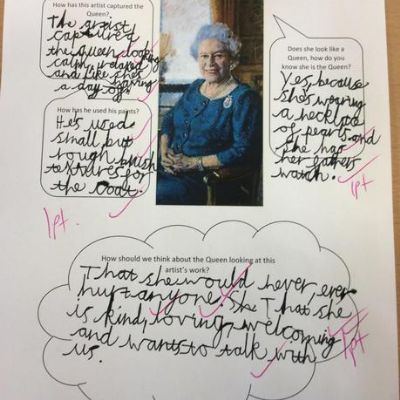 How has this artist captured the
Queen?
The artist
captured
the queen looking
calm, relaxed
and like she's
having
a day off
Does she look like a
Queen, how do you
know she is the Queen?
Yes, because
she's wearing
a necklace
of pearls and
she has
her fathers
watch.
1pt
How has he used his paints?
He's used
small but
rough brush
textures for
the coat.
1pt.
How should we think about the Queen looking at this
artist's work?
That she would never, ever
hurt anyone. She That she
is kind, loving, welcoming
and wants to talk with
us.
1pt